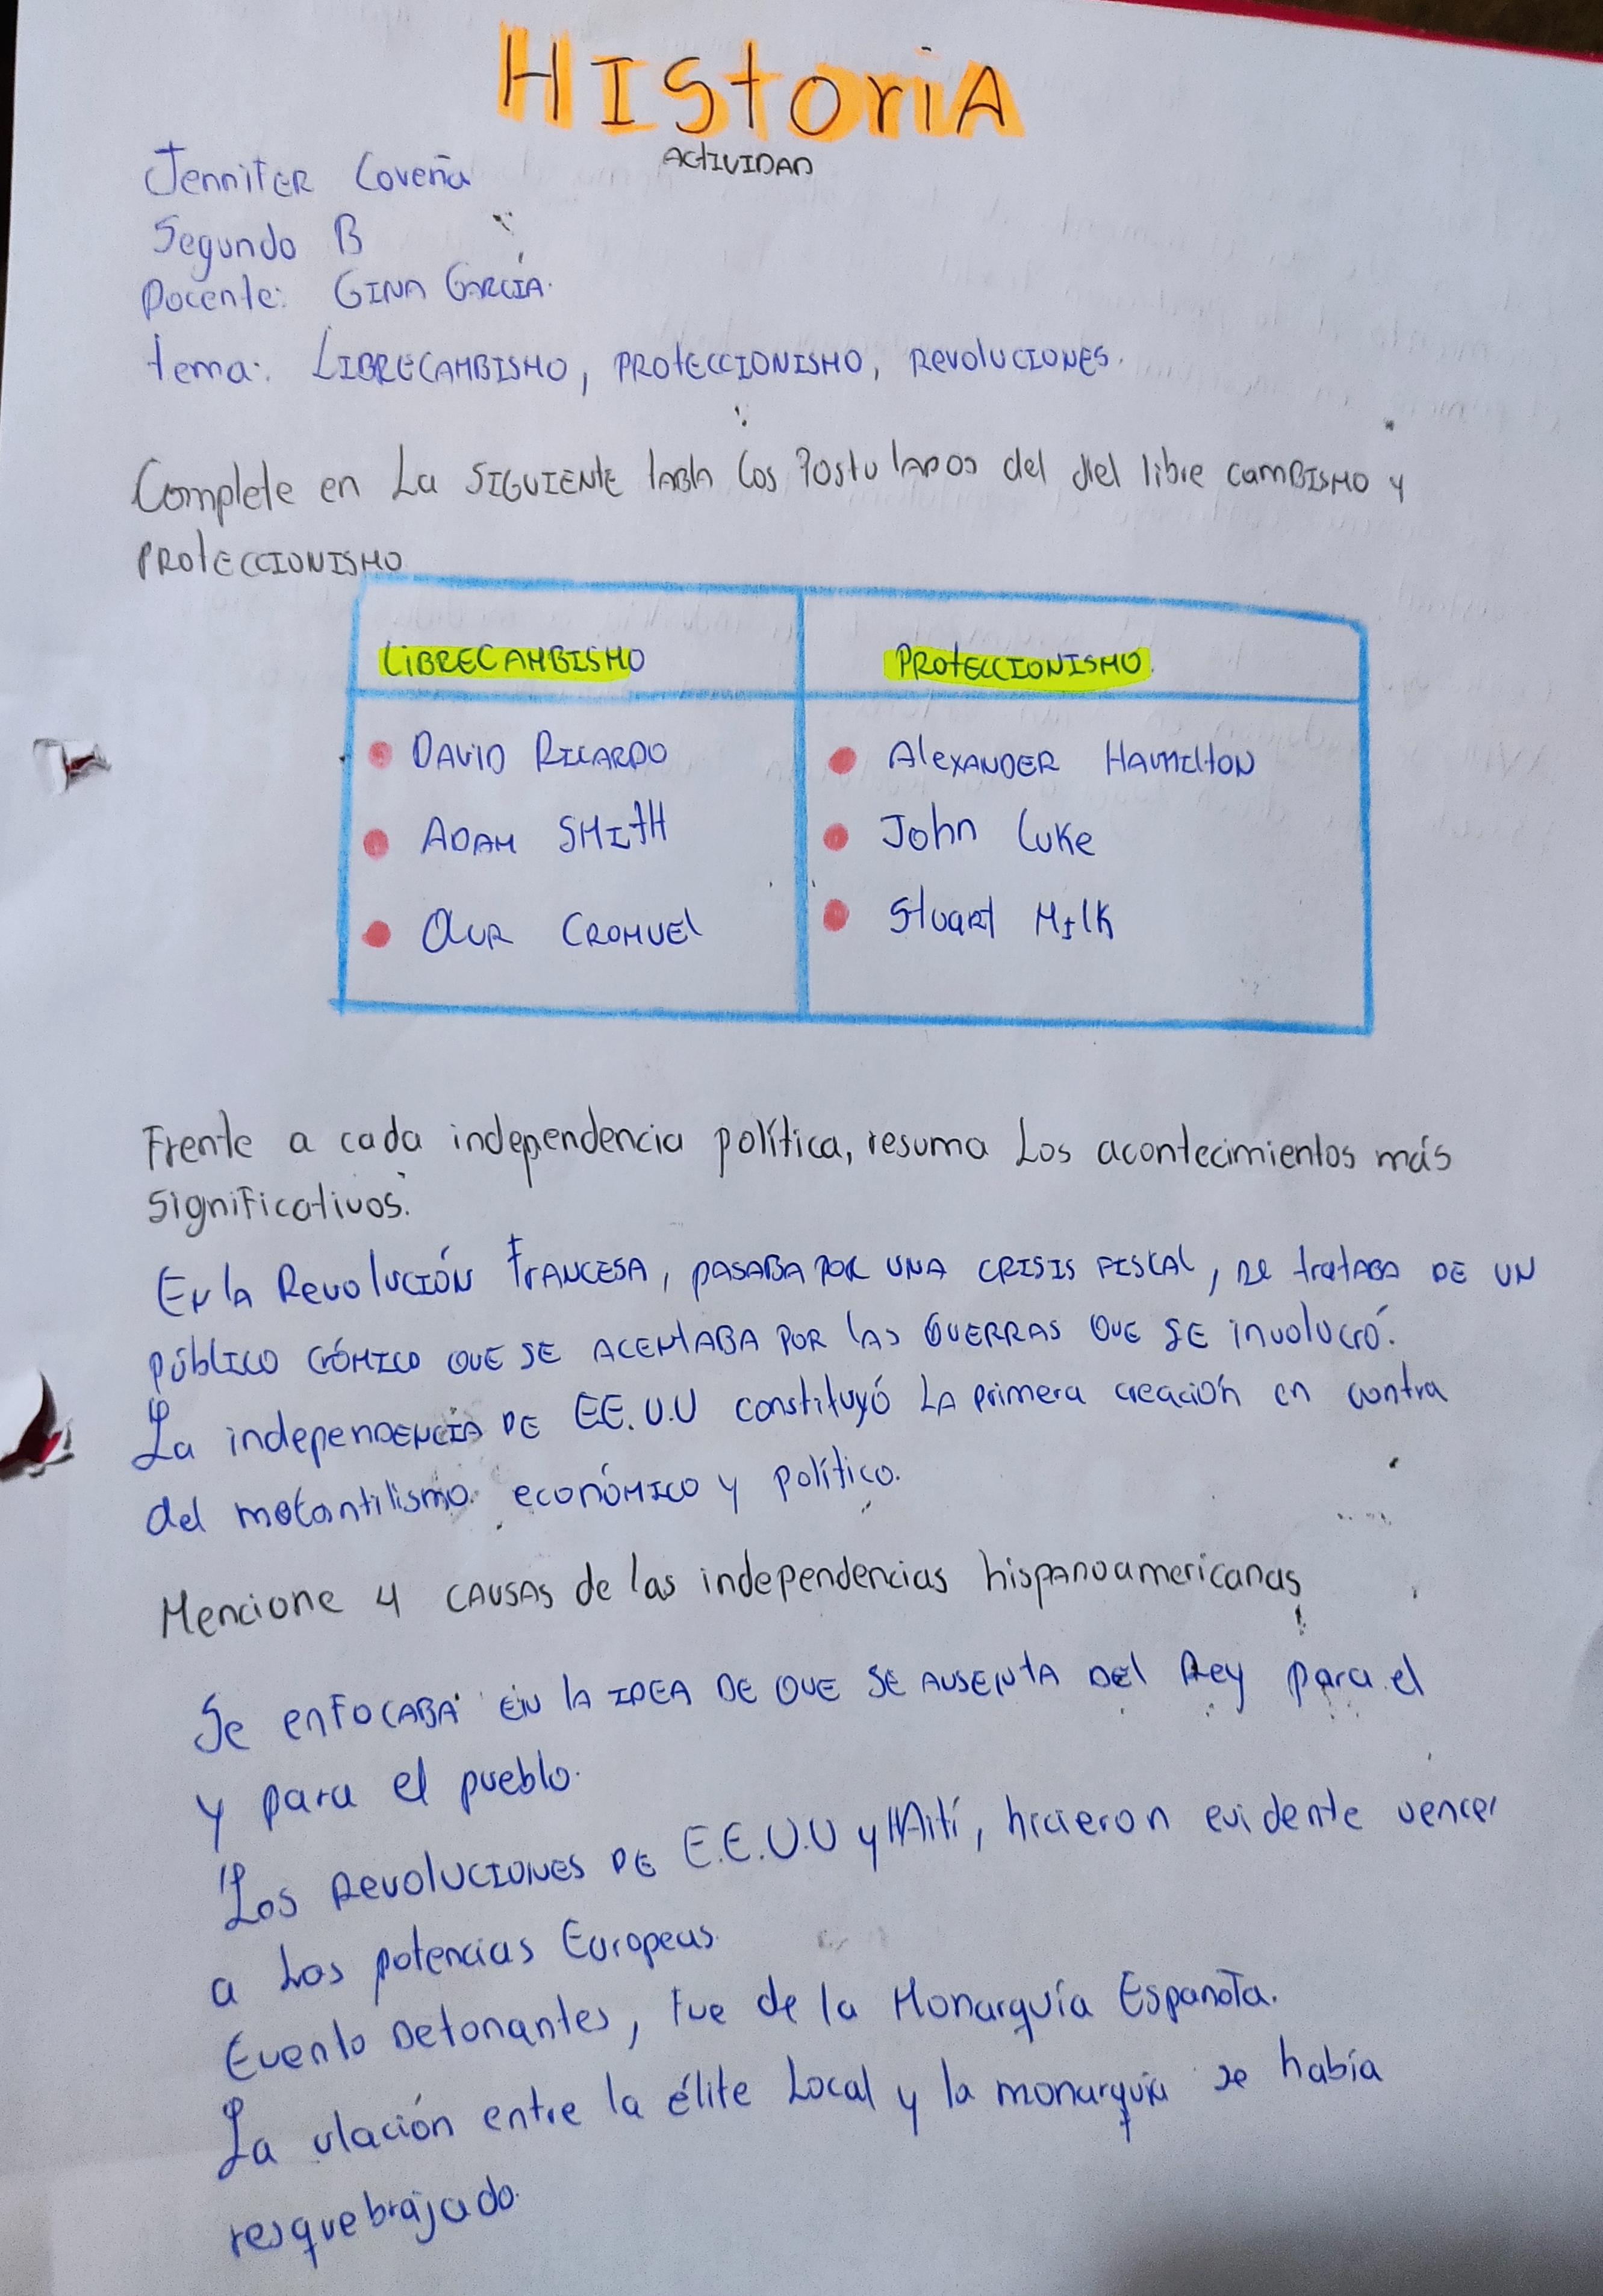 HIStoriA
ActIVIDAD
JenniFER Coveña
Segundo B
Docente: GINA GARCÍA.
tema: LIBRECAMBISMO, PROTECCIONISMO, REVOLUCIONES.
Complete en La SIGUIENTE TABLA los PostulADOS del del libre camBISMO y
PROTECCIONISMO
LIBRECAMBISMO
PROTECCIONISMO.
DAVID RICARDO
Alexander Hamilton
ADAM SMITH
John Luke
Olur Cromuel
Stuart Milk
Frente a cada independencia política, resuma Los acontecimientos más
significativos.
En la Revolución Francesa, pasaba por una crisis fiscal, se trataba de un
público crómico que se acentaba por las guerras que se involucró.
La independencia de EE.U.U constituyó la primera creación en contra
del económico y político.
Mencione 4 causas de las independencias hispanoamericanas
Se enfocaba en la idea de que se ausenta del Rey para el
y para el pueblo.
Los revoluciones de E.E.U.U y Haití, hicieron evidente vencer
a Los potencias Europeas.
Evento Detonantes, fue de la Monarquía Española.
La ulación entre la élite Local y la monarquía se había
resquebrajado.